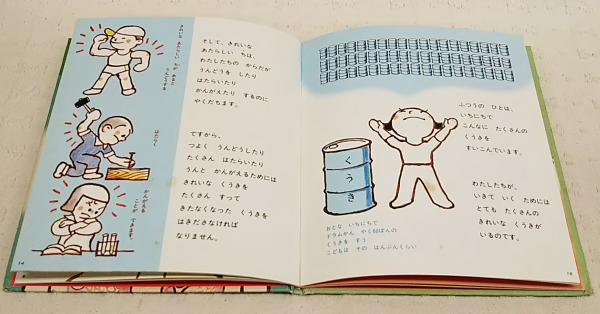 きれいな あたらしい ちが あると
うんどうする
はたらく
かんがえる
ことが できます。
そして、きれいな
あたらしい ちは、
わたしたちの からだが
うんどうを したり
はたらいたり
かんがえたり するのに
やくだちます。
ですから、
つよく うんどうしたり
たくさん はたらいたり
うんと かんがえるためには
きれいな くうきを
たくさん すって
きたなくなった くうきを
はきださなければ
なりません。
14
くうき
おとな いちにちで
ドラムかん やく60ぱんの
くうきを すう
こどもは その はんぶんくらい
ふつうの ひとは、
いちにちで
こんなに たくさんの
くうきを
すいこんでいます。
わたしたちが、
いきて いく ためには
とても たくさんの
きれいな くうきが
いるのです。